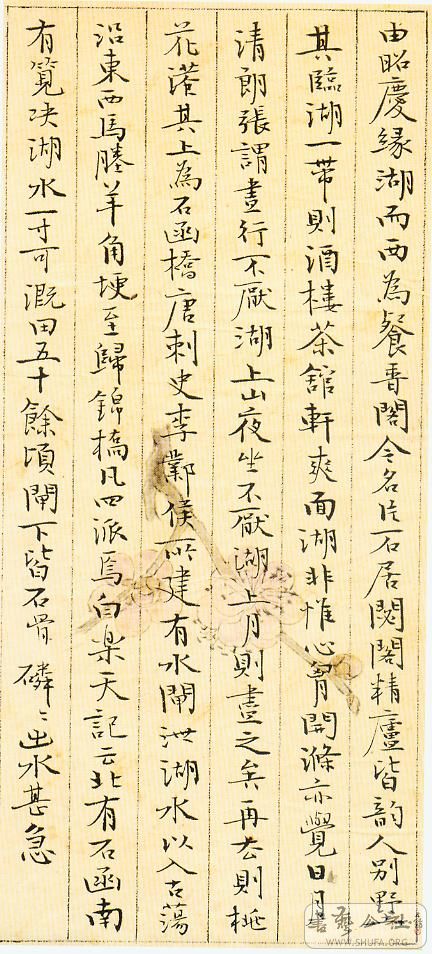 由昭慶緣湖而西為餐香閣今名片石居閟閣精廬皆韵人別墅
其臨湖一帶則酒樓茶舘軒爽面湖非惟心胷開滌亦覺日月
清朗張謂晝行不厭湖上山夜坐不厭湖上月則盡之矣再去則桃
花港其上為石函橋唐刺史李鄴侯所建有水閘泄湖水以入古蕩
沿東西馬塍羊角埂至歸錦橋凡四派焉白樂天記云北有石函南
有筧決湖水一寸可溉田五十餘頃閘下皆石骨磷〻出水甚急
WWW.SHUFA.ORG